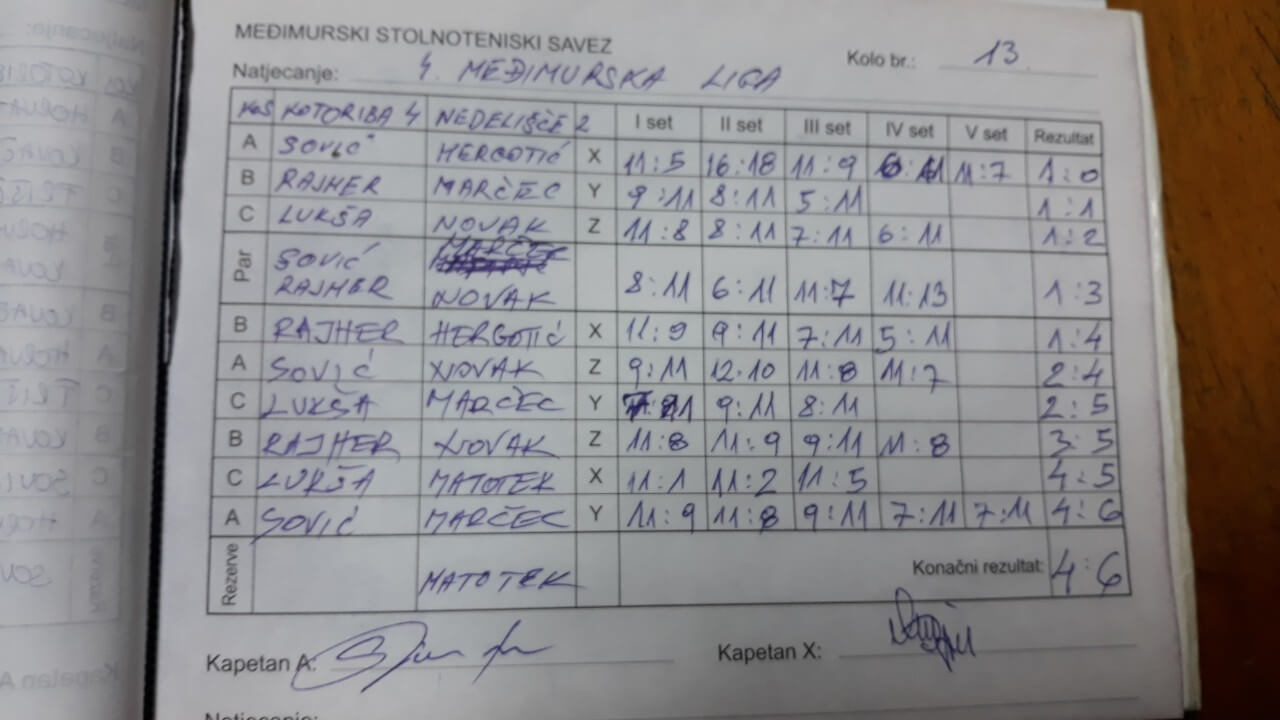 MEĐIMURSKI STOLNOTENISKI SAVEZ
Kolo br.: 13.
Natjecanje: 4. MEĐIMURSKA LIGA
KOTORIBA 4 NEDELIŠĆE 2 I set II set III set IV set V set Rezultat
A SOVIĆ HERGOTIĆ X 11:5 16:18 11:9 6:11 11:7 1:0
B RAJHER MARČEC Y 9:11 8:11 5:11 1:1
C LUKŠA NOVAK Z 11:8 8:11 7:11 6:11 1:2
Par SOVIĆ MARČEC
RAJHER NOVAK 8:11 6:11 11:7 11:13 1:3
B RAJHER HERGOTIĆ X 11:9 9:11 7:11 5:11 1:4
A SOVIĆ NOVAK Z 9:11 12:10 11:8 11:7 2:4
C LUKŠA MARČEC Y 9:11 8:11 2:5
B RAJHER NOVAK Z 11:8 11:9 9:11 11:8 3:5
C LUKŠA MATOTEK X 11:1 11:2 11:5 4:5
A SOVIĆ MARČEC Y 11:9 11:8 9:11 7:11 7:11 4:6
Rezerve MATOTEK Konačni rezultat: 4:6
Kapetan A:
Kapetan X: